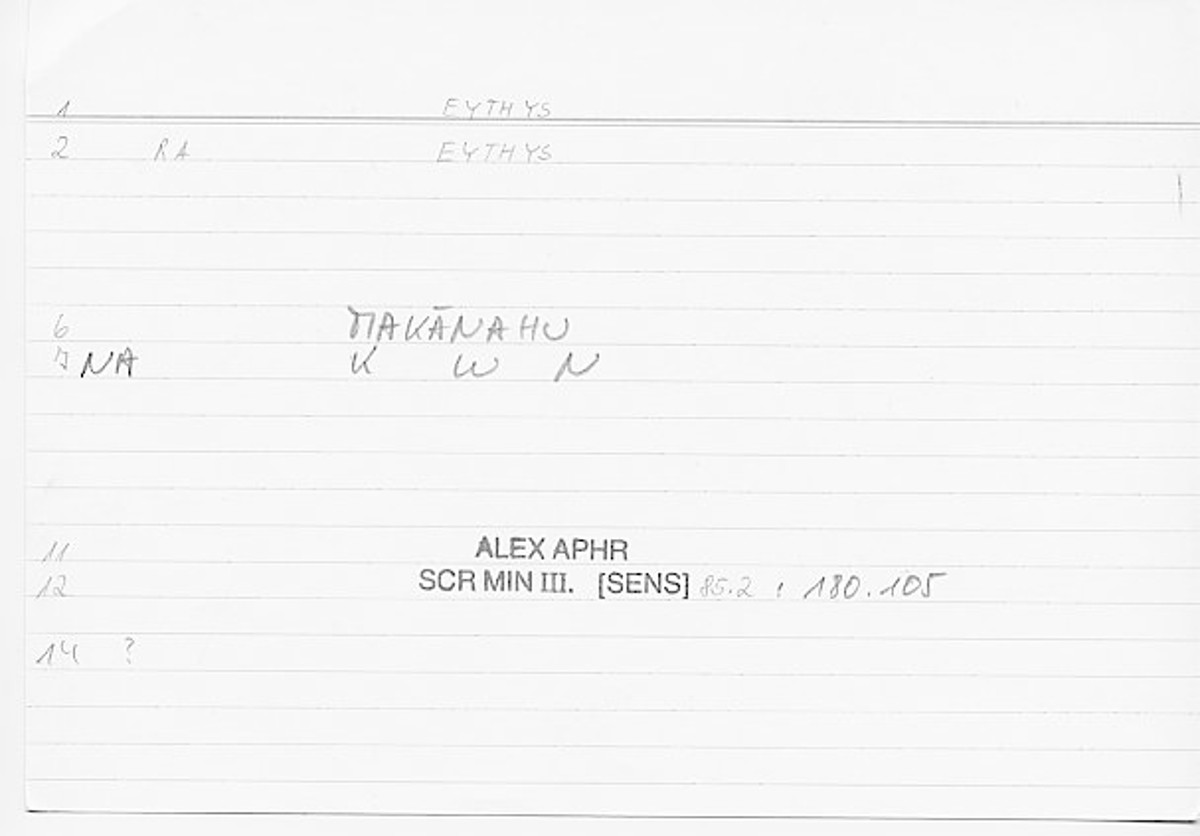 1 EYTHYS
2 RA EYTHYS
6 MAKĀNAHU
7 NA K W N
11 ALEX APHR
12 SCR MIN III. [SENS] 85.2 ; 180.105
14 ?